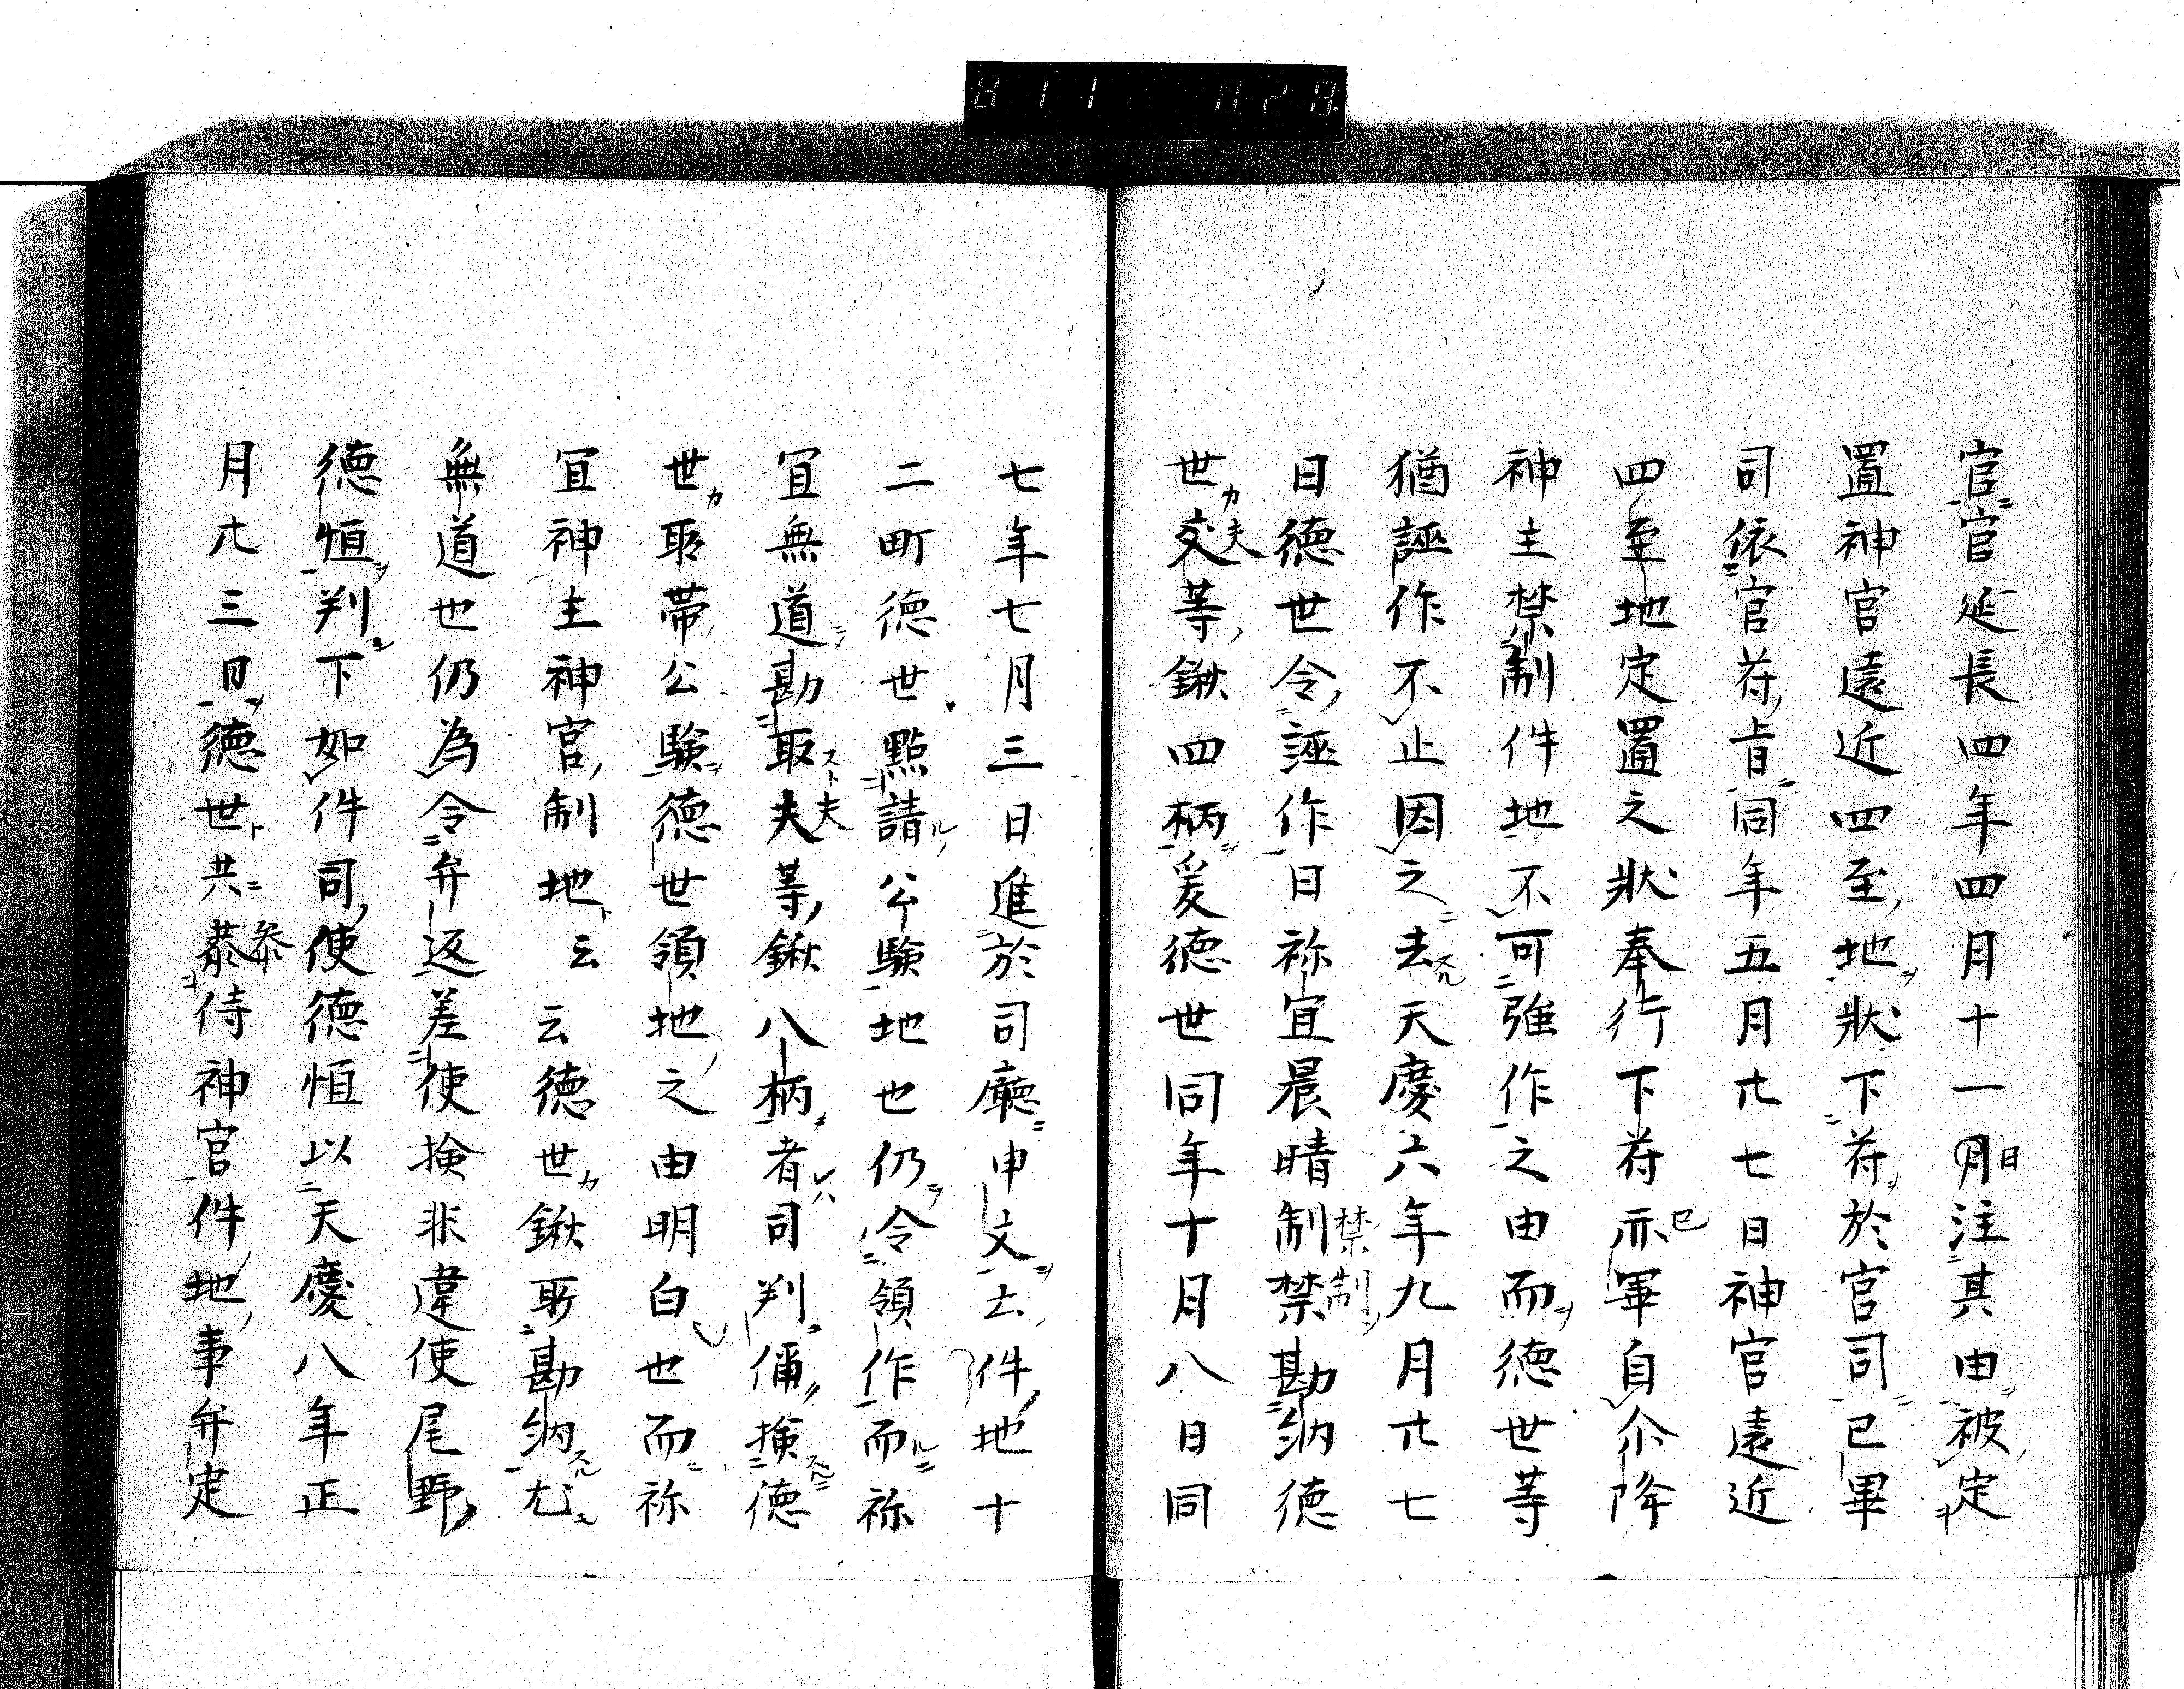 811 028
官官延長四年四月十一月日注其由被定
置神宮遠近四至地狀下符於官司已畢
司依官符旨同年五月廿七日神宮遠近
四至地定置之狀奉行下符亦已畢自尒降
神主禁制件地不可強作之由而徳世等
猶誣作不止因之去天慶六年九月廿七
日徳世令誣作日祢宜晨晴制禁禁制勘納徳
世カ交夫等鍬四柄爰徳世同年十月八日同
七年七月三日進於司廳申文云件地十
二町徳世點請公験地也仍令領作而祢
宜無道勘取夫夫等鍬八柄者司判偁撿徳
世カ所帯公験徳世領地之由明白也而祢
宜神主神宮制地ト云云徳世カ鍬所勘納尤
無道也仍為令弁返差使撿非違使尾野
徳恒判下如件司使徳恒以天慶八年正
月廿三日徳世ト共恭参侍神宮件地事弁定